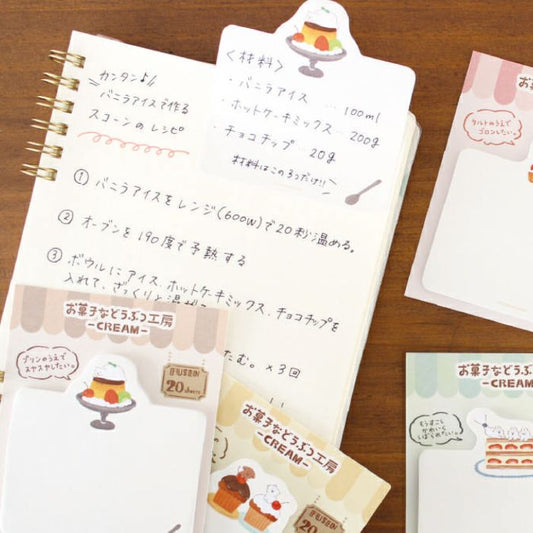 カンタン♪
バニラアイスで作る
スコーンのレシピ
〈材料〉
・バニラアイス … 100ml
・ホットケーキミックス … 200g
・チョコチップ … 20g
材料はこの3つだけ!!
① バニラアイスをレンジ(600W)で20秒温める。
② オーブンを190度で予熱する
③ ボウルにアイス、ホットケーキミックス、チョコチップを
入れて、ざっくりと混ぜ
たむ。×3回
お菓子などうぶつ工房
-CREAM-
プリンのうえで
スヤスヤしたい。
FUSEN
20 sheets
お菓子などうぶつ工房
-CREAM-
FUSEN
20
お菓
タルトのうえで
ゴロンしたい。
お菓子などうぶつ工
-CREAM
もうすこし
かわいく
しぼられたい。